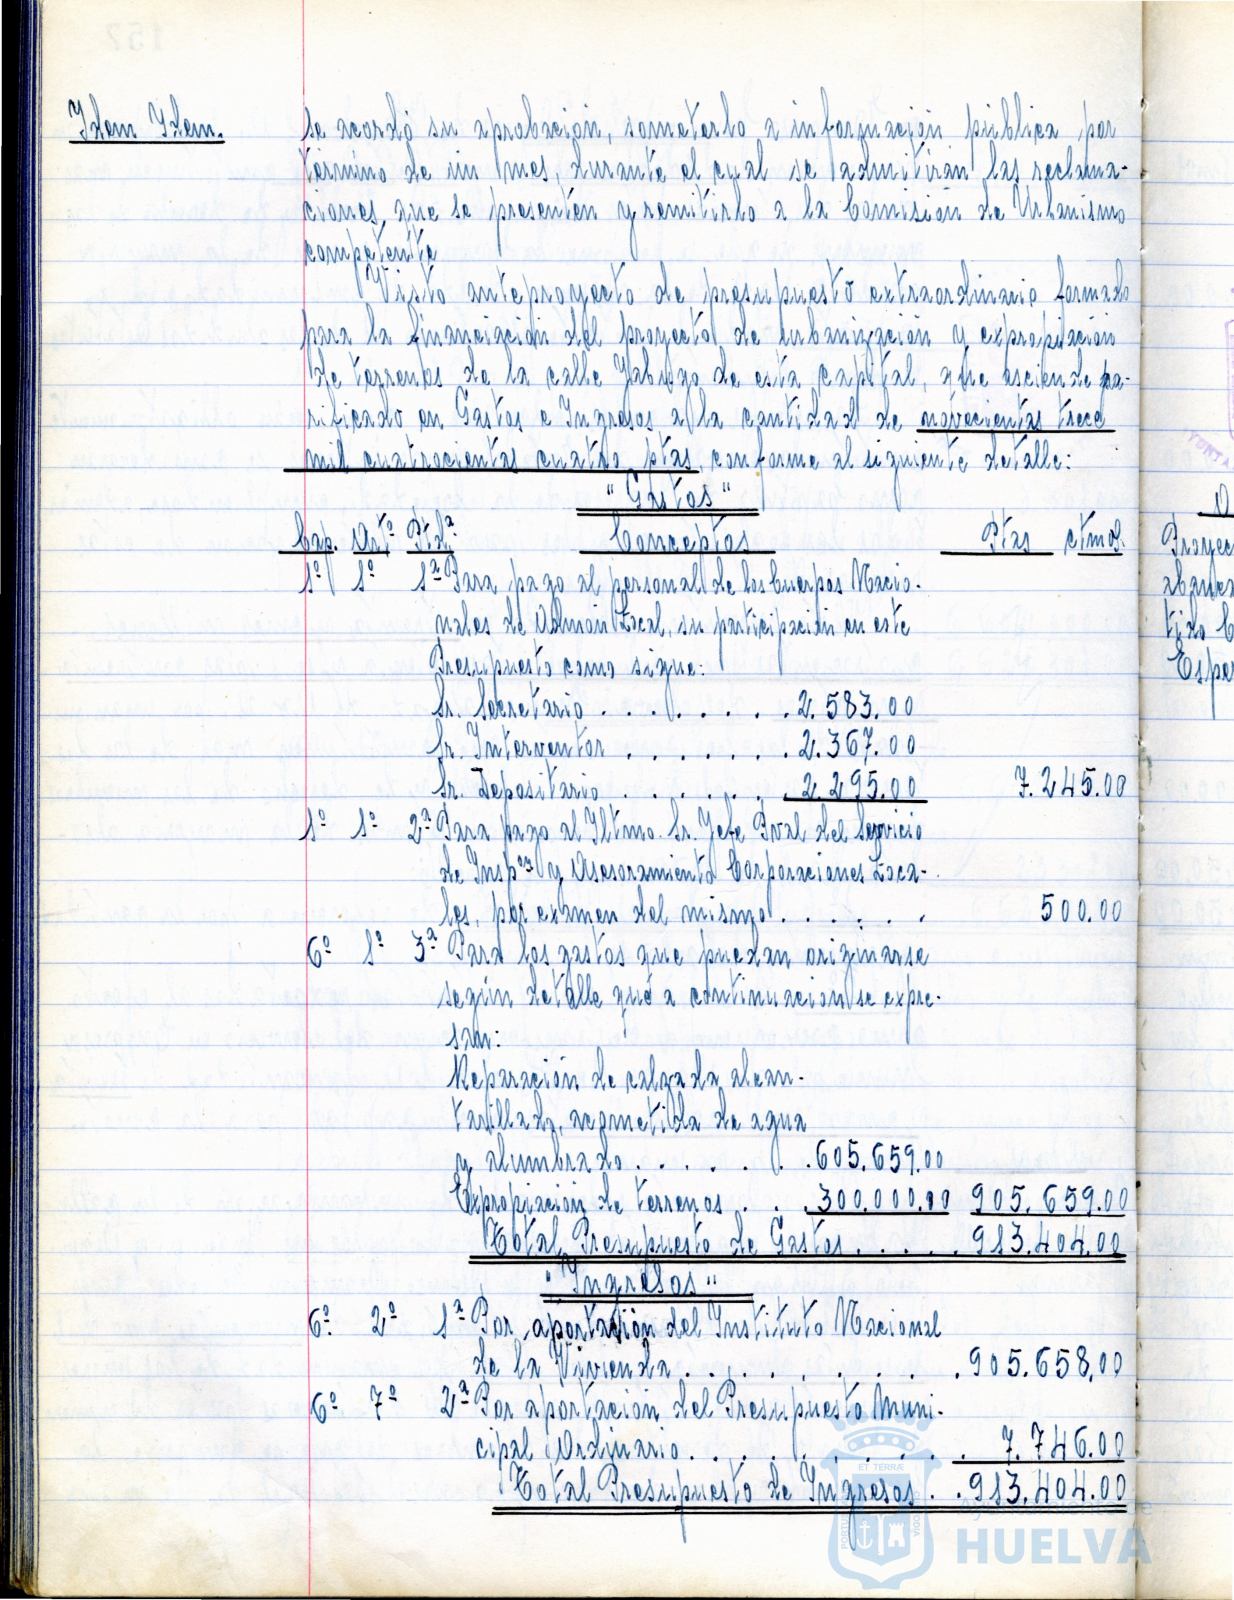 Idem Idem.
se acordó su aprobación, someterlo a información pública por
término de un mes, durante el cual se admitirán las reclama-
ciones que se presenten y remitirlo a la Comisión de Urbanismo
competente
Visto anteproyecto de presupuesto extraordinario formado
para la financiación del proyecto de urbanización y expropiación
de terrenos de la calle Jabugo de esta capital, que asciende pa-
rificado en Gastos e Ingresos a la cantidad de novecientas trece
mil cuatrocientas cuatro ptas, conforme al siguiente detalle:
"Gastos"
Cap. Artº Ptdª. Conceptos Ptas ctmos.
1º 1º 1ª Para pago al personal de los Cuerpos Nacio-
nales de Admón Local, su participación en este
Presupuesto como sigue:
Sr. Secretario . . . . . . . . 2.583.00
Sr. Interventor . . . . . . . 2.367.00
Sr. Depositario . . . . . . . 2.295.00 7.245.00
1º 1º 2ª Para pago al Iltmo. Sr. Jefe Pval del Servicio
de Inspºⁿ y Asesoramiento Corporaciones Loca-
les, por examen del mismo . . . . . . 500.00
6º 1º 3ª Para los gastos que puedan originarse
según detalle que a continuación se expre-
san:
Reparación de calzada alcan-
tarillado, acometida de agua
y alumbrado . . . . . . . 605.659.00
Expropiación de terrenos . . . 300.000.00 905.659.00
Total Presupuesto de Gastos . . . . . 913.404.00
"Ingresos"
6º. 2º 1ª Por aportación del Instituto Nacional
de la Vivienda . . . . . . . . . . 905.658,00
6º 7º 2ª Por aportación del Presupuesto Muni-
cipal Ordinario . . . . . . . . . . 7.746.00
Total Presupuesto de Ingresos . . 913.404.00
Proyec
abanca
tido C
Espe
ET TERRÆ
Ayuntamiento de
HUELVA